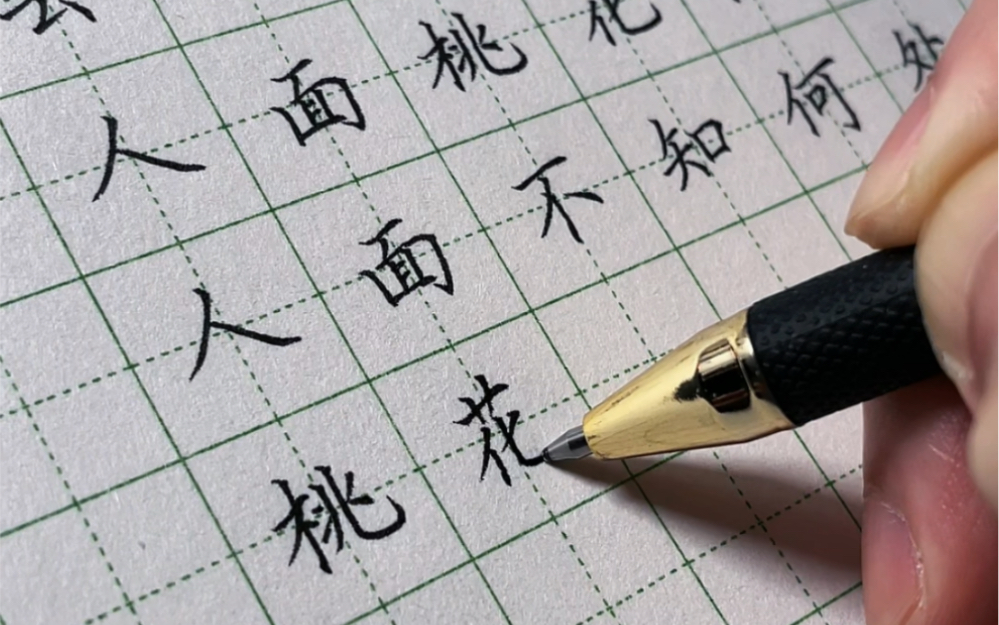 人面桃花
人面不知何处
桃花